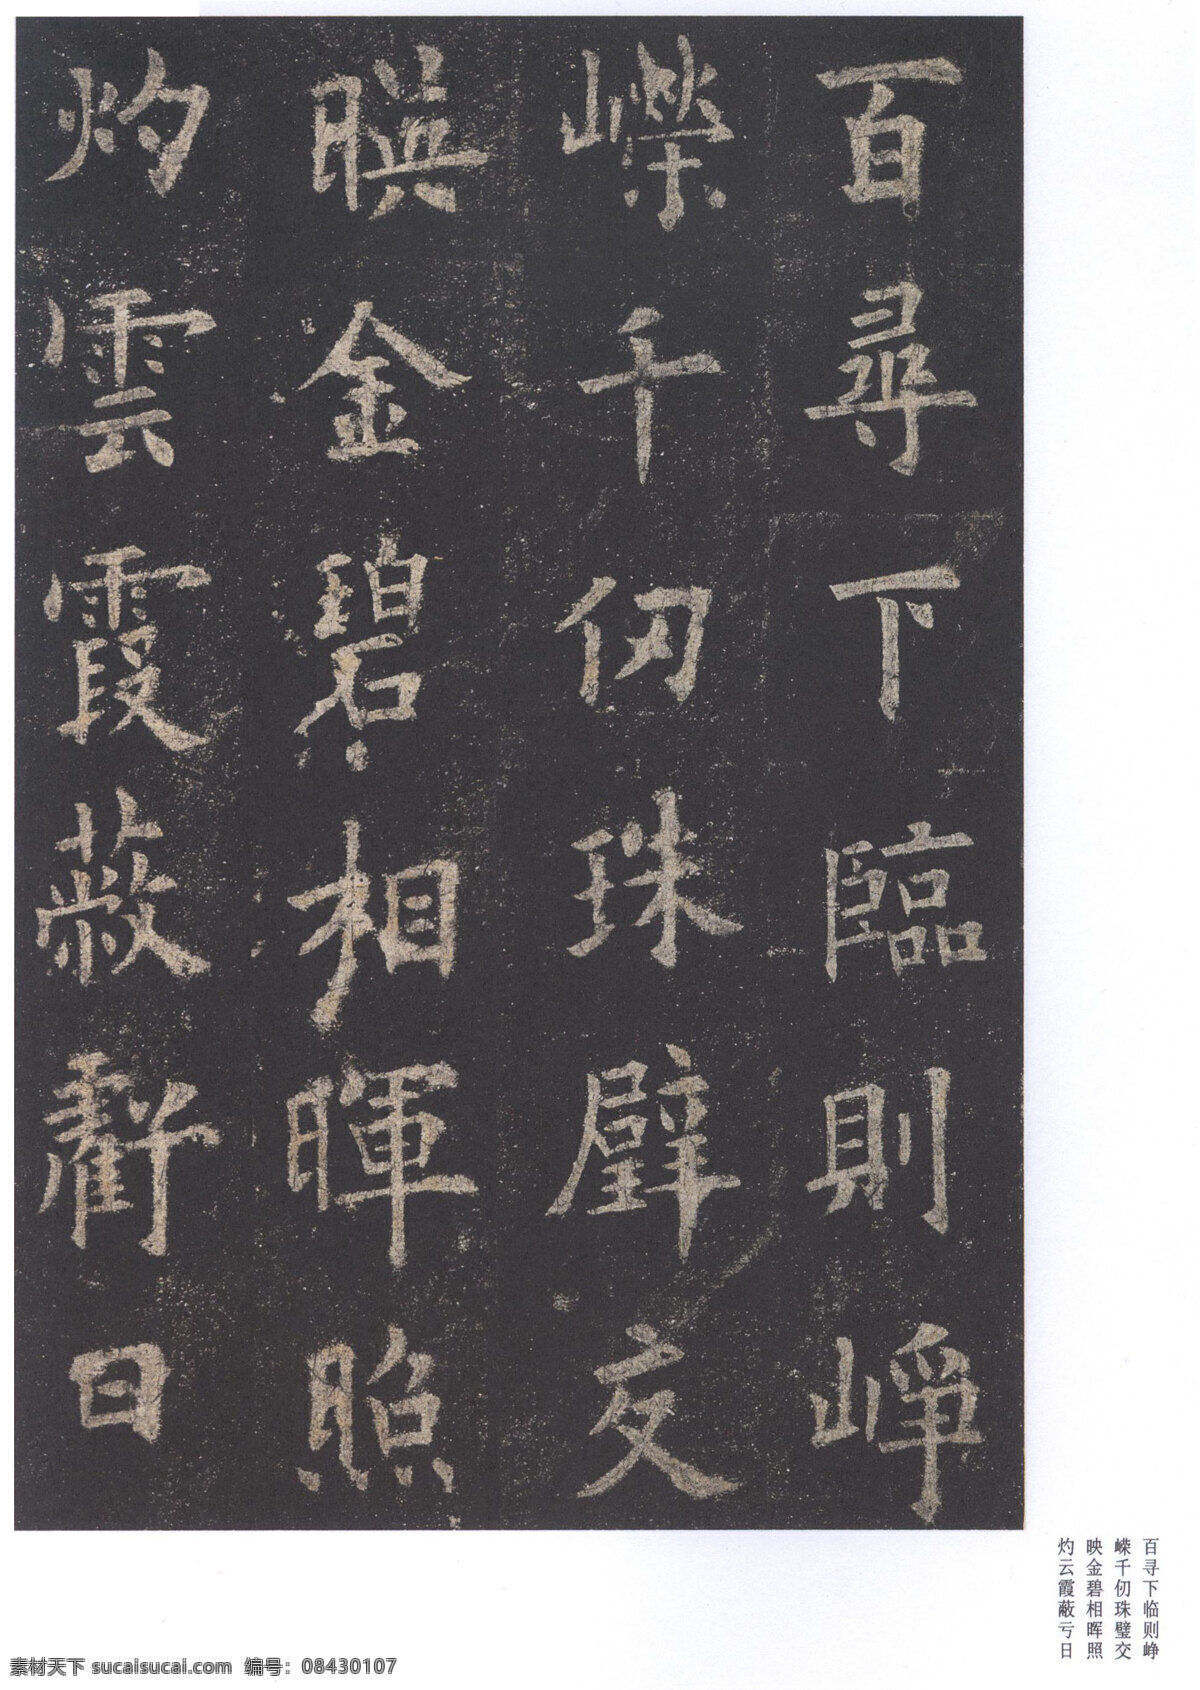 百尋下臨則崢
嶸千仞珠壁交
暎金碧相暉照
灼雲霞蔽虧日
百寻下临则峥
嵘千仞珠璧交
映金碧相晖照
灼云霞蔽亏日
素材天下 sucaisucai.com 编号：08430107